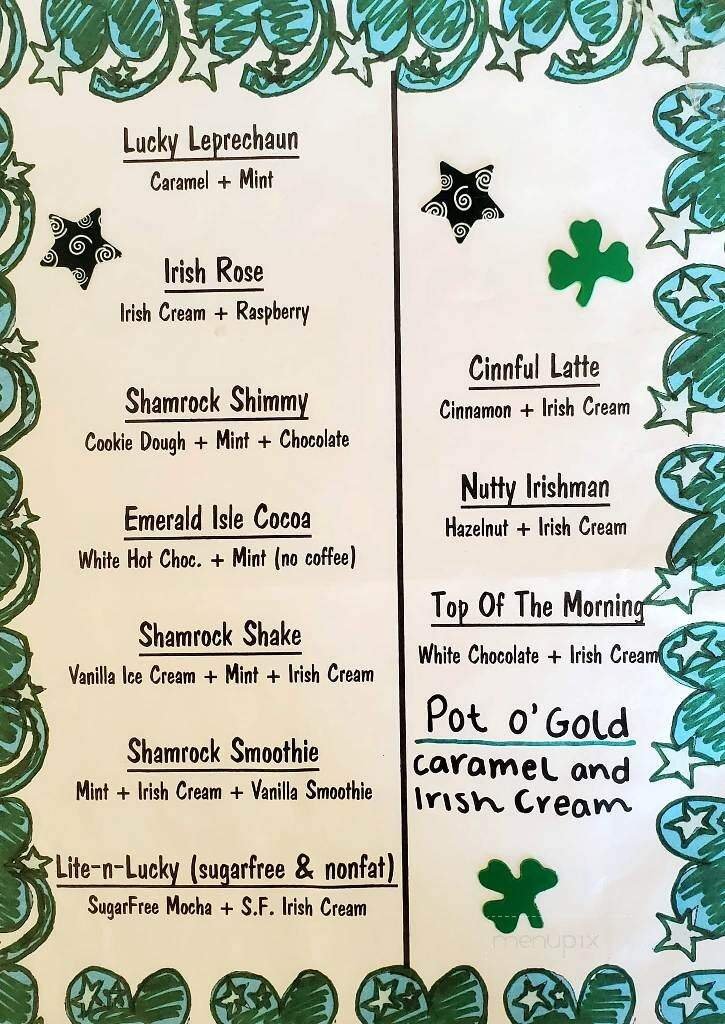 Lucky Leprechaun
Caramel + Mint
Irish Rose
Irish Cream + Raspberry
Shamrock Shimmy
Cookie Dough + Mint + Chocolate
Emerald Isle Cocoa
White Hot Choc. + Mint (no coffee)
Shamrock Shake
Vanilla Ice Cream + Mint + Irish Cream
Shamrock Smoothie
Mint + Irish Cream + Vanilla Smoothie
Lite-n-Lucky (sugarfree & nonfat)
SugarFree Mocha + S.F. Irish Cream
Cinnful Latte
Cinnamon + Irish Cream
Nutty Irishman
Hazelnut + Irish Cream
Top Of The Morning
White Chocolate + Irish Cream
Pot O' Gold
Caramel and
Irish Cream
menupix